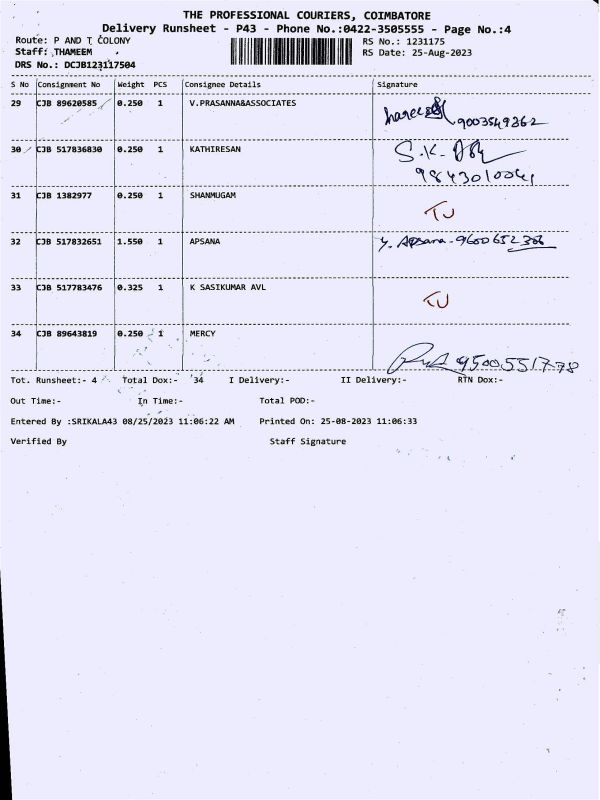 THE PROFESSIONAL COURIERS, COIMBATORE
Delivery Runsheet - P43 - Phone No.:0422-3505555 - Page No.:4
Route: P AND T COLONY RS No.: 1231175
Staff: THAMEEM RS Date: 25-Aug-2023
DRS No.: DCJB123117504
S No Consignment No Weight PCS Consignee Details Signature
29 CJB 89620585 0.250 1 V.PRASANNA&ASSOCIATES
9003549362
30 CJB 517836830 0.250 1 KATHIRESAN S.K.
9843010041
31 CJB 1382977 0.250 1 SHANMUGAM
TU
32 CJB 517832651 1.550 1 APSANA Y. Apsana - 9600652306
33 CJB 517783476 0.325 1 K SASIKUMAR AVL
TU
34 CJB 89643819 0.250 1 MERCY
9500551778
Tot. Runsheet:- 4 Total Dox:- 34 I Delivery:- II Delivery:- RTN Dox:-
Out Time:- In Time:- Total POD:-
Entered By :SRIKALA43 08/25/2023 11:06:22 AM Printed On: 25-08-2023 11:06:33
Verified By Staff Signature